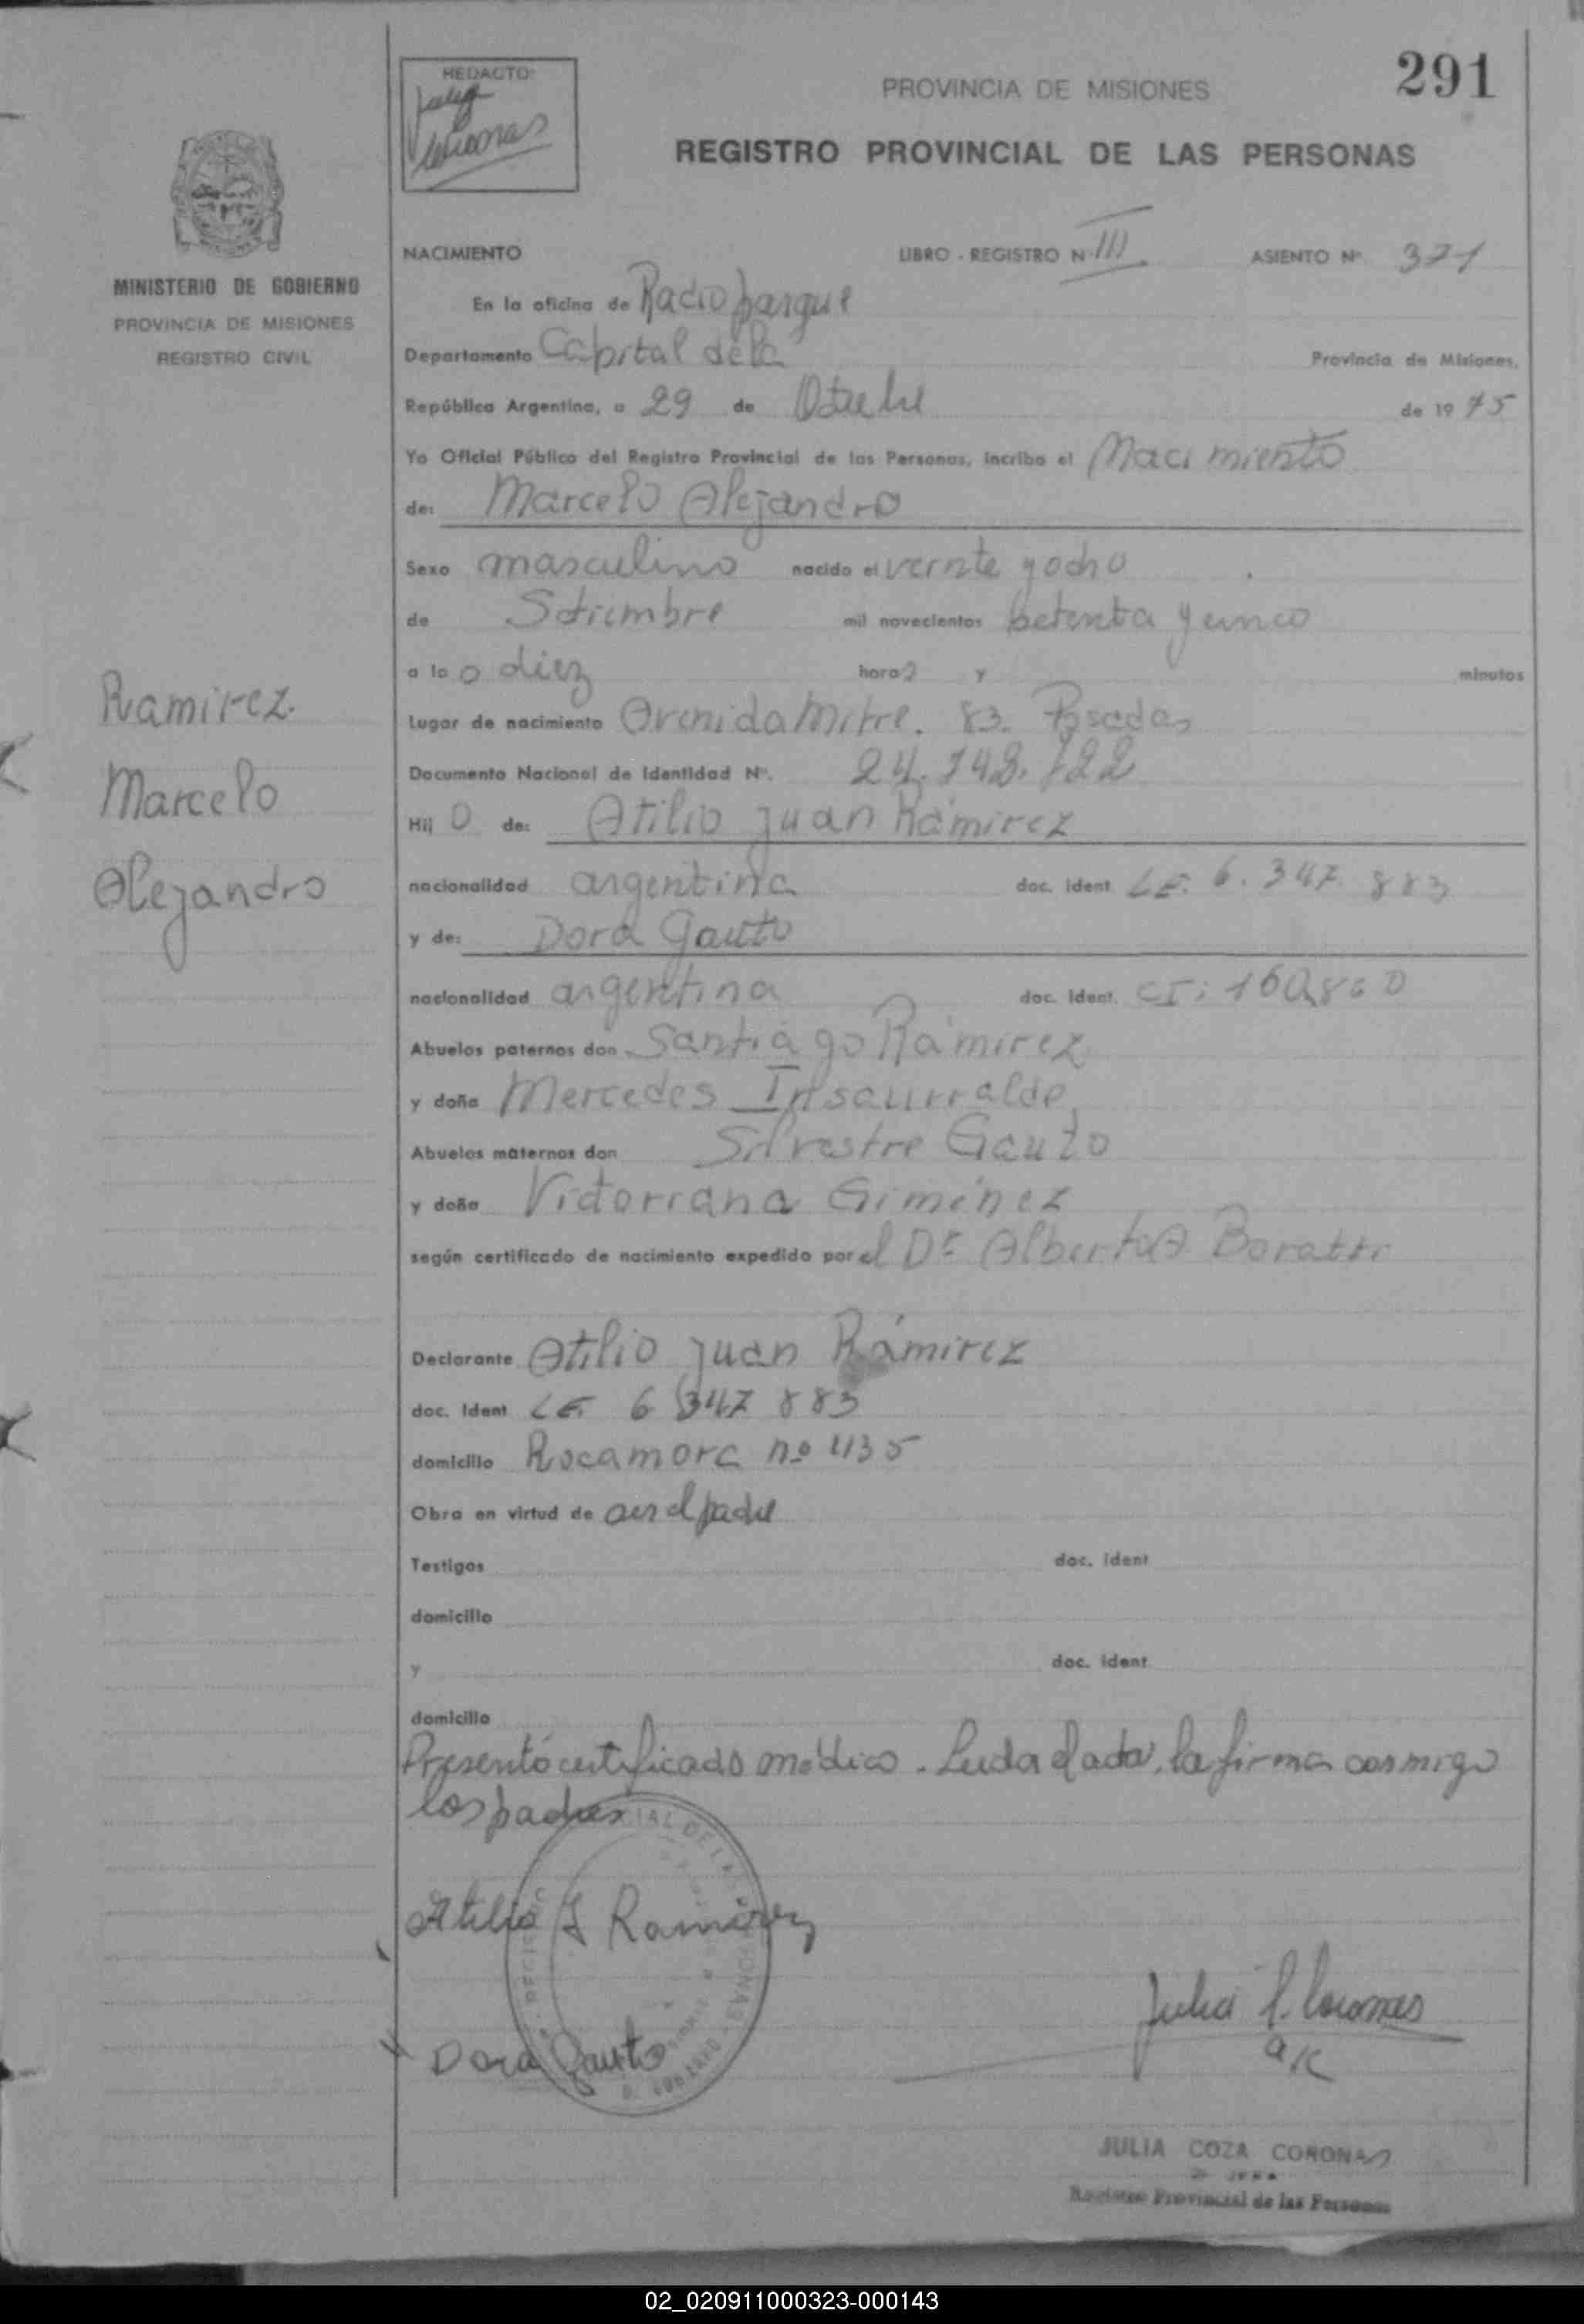 291
REDACTO:
PROVINCIA DE MISIONES
REGISTRO PROVINCIAL DE LAS PERSONAS
MINISTERIO DE GOBIERNO
PROVINCIA DE MISIONES
REGISTRO CIVIL
NACIMIENTO LIBRO - REGISTRO Nº III ASIENTO Nº 371
En la oficina de Radio parque
Departamento Capital de la Provincia de Misiones,
República Argentina, a 29 de Octubre de 19 75
Yo Oficial Público del Registro Provincial de las Personas, incribo el Nacimiento
de: Marcelo Alejandro
Sexo masculino nacido el veinte y ocho
de Setiembre mil novecientos setenta y cinco
a la s diez horas y minutos
Lugar de nacimiento Avenida Mitre. 83. Posadas
Documento Nacional de Identidad Nº.
Hij o de: Atilio Juan Ramirez
nacionalidad argentina doc. ident LE. 6.347.883
y de: Dora Gauto
nacionalidad argentina doc. ident. CI:
Abuelos paternos don Santiago Ramirez
y doña Mercedes Insaurralde
Abuelos maternos don Silvestre Gauto
y doña Victoriana Gimenez
según certificado de nacimiento expedido por el Dr. Alberto A. Boratti
Ramirez.
Marcelo
Alejandro
Declarante Atilio Juan Ramirez
doc. Ident LE. 6 347 883
domicilio Rocamora nº 435
Obra en virtud de ser el padre
Testigos doc. ident
domicilio
y doc. ident
domicilio
Presentó certificado médico. Leida el acta, la firman conmigo
los padres
Atilio J Ramirez
Dora Gauto
JULIA COZA CORONAS
Registro Provincial de las Personas
02_020911000323-000143